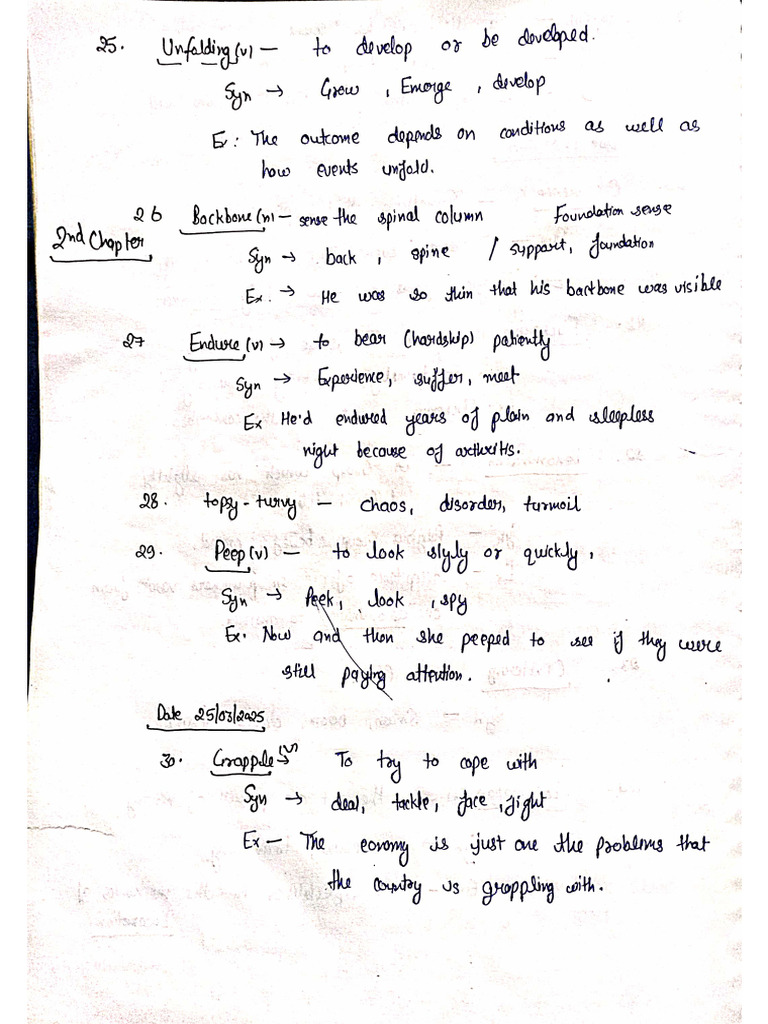 25. Unfalding (v) — to develop or be developed.
Syn → Grow, Emerge, develop
Ex: The outcome depends on conditions as well as
how events unfold.
26 Backbone (n) — sense the spinal column Foundation sense
2nd Chapter
Syn → back, spine / support, foundation
Ex. → He was so thin that his backbone was visible
27 Endure (v) → to bear (hardship) patiently
Syn → Experience, suffer, meet
Ex He'd endured years of plain and sleepless
night because of arthritis.
28. topsy-turvy — chaos, disorder, turmoil
29. Peep (v) — to look slyly or quickly,
Syn → Peek, look, spy
Ex. Now and then she peeped to see if they were
still paying attention.
Date 25/03/2025
30. Grapple (v) → To try to cope with
Syn → deal, tackle, face, fight
Ex — The eonomy is just one the problems that
the country is grappling with.